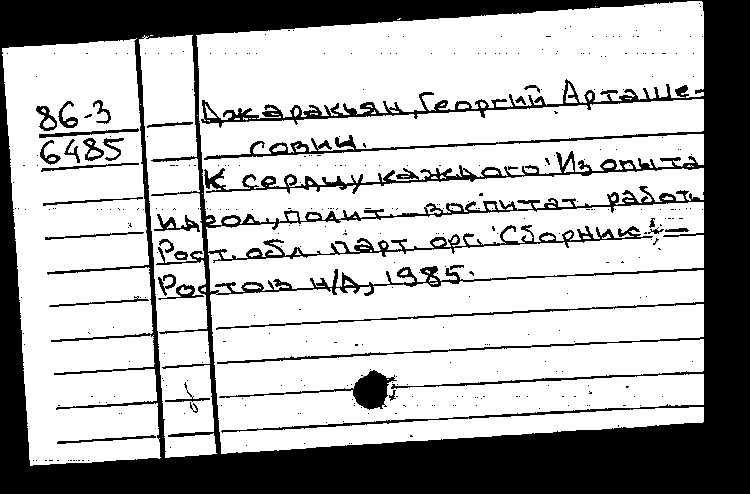 86-3
6485
Джаракьян, Георгий Арташе-
сович.
К сердцу каждого: Из опыта
идеол., полит.-воспитат. работы
Рост. обл. парт. орг.: Сборник. -
Ростов н/Д, 1985.